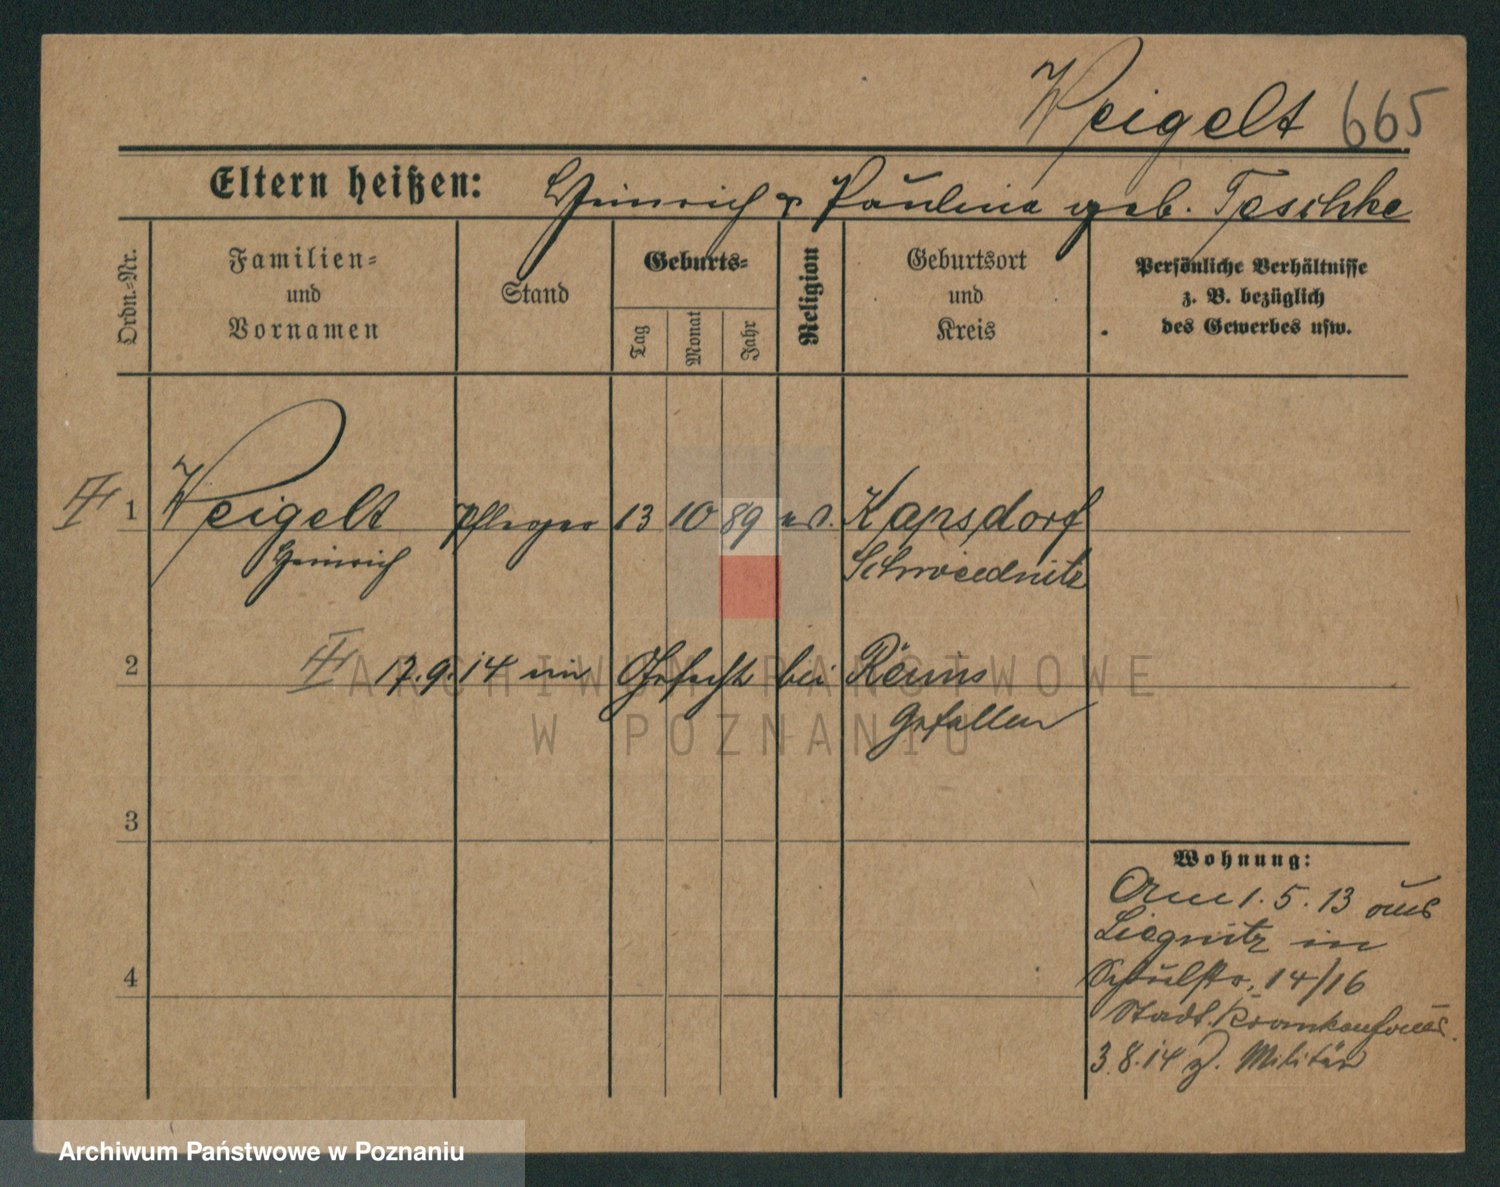 Weigelt 665
Eltern heißen: Heinrich & Paulina geb. Teschke
Ordn.-Nr.
Familien- und Vornamen
Stand
Geburts-
Tag
Monat
Jahr
Religion
Geburtsort und Kreis
Persönliche Verhältnisse z. B. bezüglich des Gewerbes usw.
1 Weigelt Pfleger 13 10 89 ev. Kapsdorf
Heinrich Schweidnitz
2 17.9.14 im Gefecht bei Reims
gefallen
3
4
Wohnung:
Am 1.5.13 aus
Liegnitz in
Schulstr. 14/16
Stadt. Krankenhaus.
3.8.14 z. Militär
ARCHIWUM PAŃSTWOWE
W POZNANIU
Archiwum Państwowe w Poznaniu